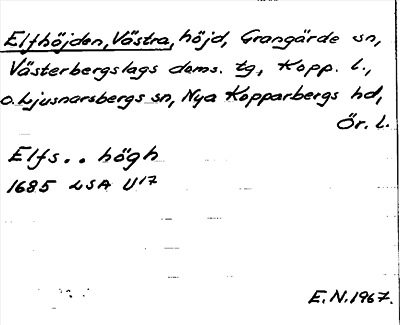 Elfhöjden, Västra, höjd, Grangärde sn,
Västerbergslags doms. tg, Kopp. l.,
o. Ljusnarsbergs sn, Nya Kopparbergs hd,
Ör. l.
Elfs.. högh
1685 LSA U17
E.N. 1967.